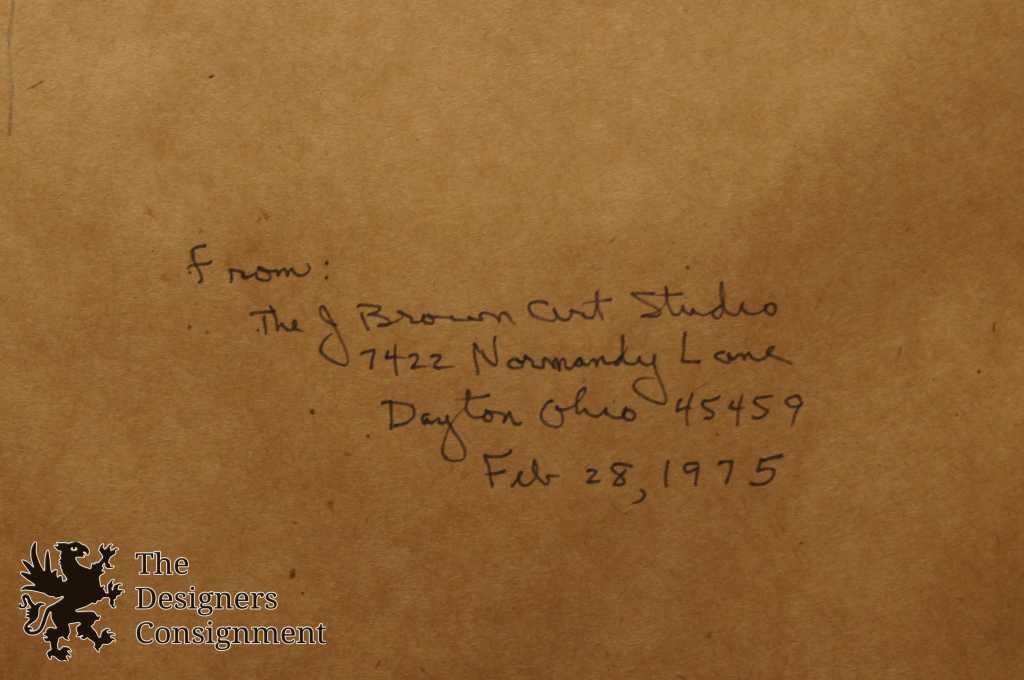 From:
The J Brown Art Studio
7422 Normandy Lane
Dayton Ohio 45459
Feb 28, 1975
The
Designers
Consignment